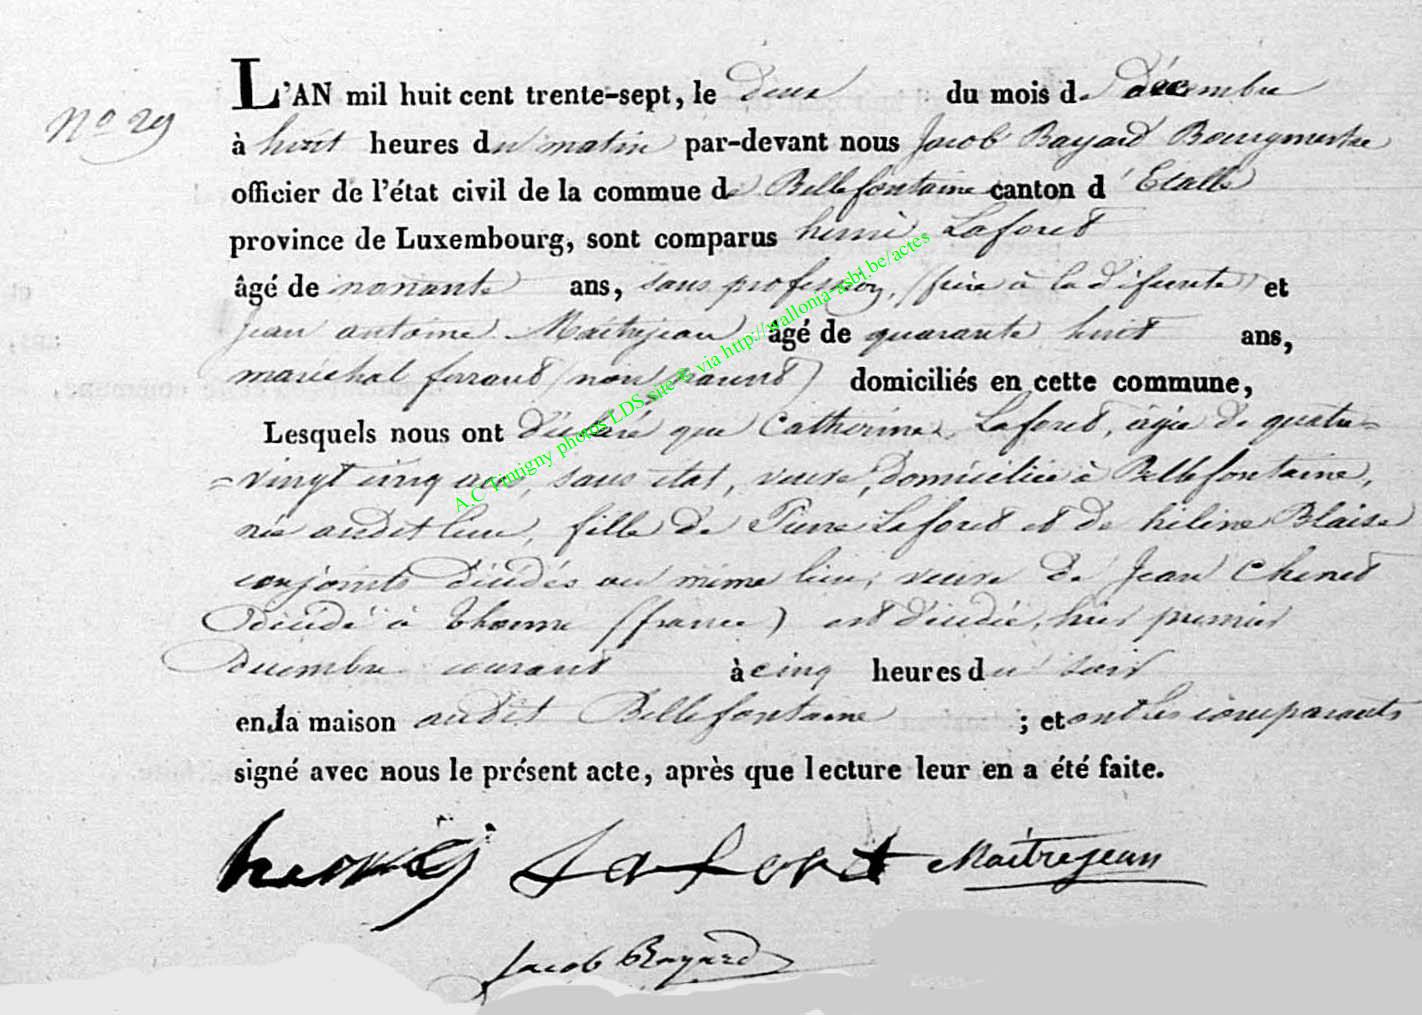 No 29
L'AN mil huit cent trente-sept, le deux du mois de décembre
à huit heures du matin par-devant nous Jacob Bayard Bourgmestre
officier de l'état civil de la commue de Bellefontaine canton d'Etalle
province de Luxembourg, sont comparus henri Laforet
âgé de nonante ans, sans profession, (frère à la défunte) et
Jean antoine Maitrejean âgé de quarante huit ans,
maréchal ferrant (non parent) domiciliés en cette commune,
Lesquels nous ont déclaré que Catherine Laforet, agée de quatre=
=vingt cinq ans, sans état, veuve, domiciliée à Bellefontaine,
née audit lieu, fille de Pierre Laforet et de hélène Blaise
conjoints décédés au même lieu, veuve de Jean Chenet
décédé à (france) est décédée, hier premier
décembre courant à cinq heures du soir
en la maison audit Bellefontaine ; et ont les comparants
signé avec nous le présent acte, après que lecture leur en a été faite.
henrij Laforet Maitrejean
Jacob Bayard
A.C Tintigny photos LDS site via http://wallonia-asbl.be/actes